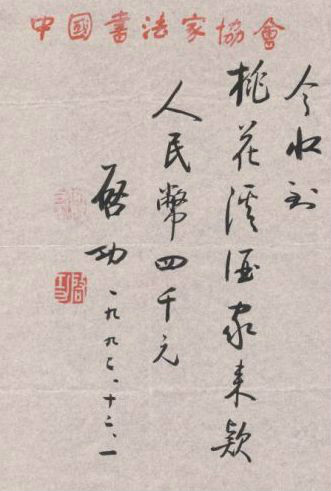 中國書法家協會
今收到
桃花溪酒家来款
人民幣四千元
啓功 一九九七、十二、一